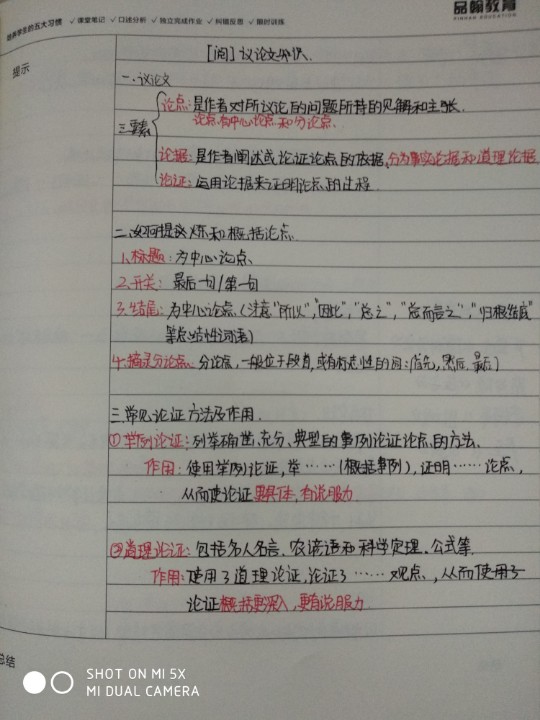 培养学生的五大习惯 ✓课堂笔记 ✓口述分析 ✓独立完成作业 ✓纠错反思 ✓限时训练
品翰教育
提示
[阅]议论文知识.
一.议论文
三要素
论点:是作者对所议论的问题所持的见解和主张.
论点有中心论点和分论点.
论据:是作者阐述或论证论点的依据,分为事实论据和道理论据
论证:运用论据来证明论点的过程.
二.如何提炼和概括论点.
1.标题:为中心论点、
2.开头:最后一句/第一句
3.结尾:为中心论点.(注意"所以","因此","总之","总而言之","归根结底"
等总结性词语)
4.摘录分论点:分论点,一般位于段首,或有标志性的词:(首先,然后,最后)
三.常见论证方法及作用.
①举例论证:列举确凿、充分、典型的事例论证论点的方法、
作用:使用举例论证,举……(概括事例),证明……论点,
从而使论证更具体,有说服力.
②道理论证:包括名人名言、农谚语和科学定理、公式等.
作用:使用了道理论证,论证了……观点、,从而使用了
论证概括更深入,更有说服力.
总结
SHOT ON MI 5X
MI DUAL CAMERA